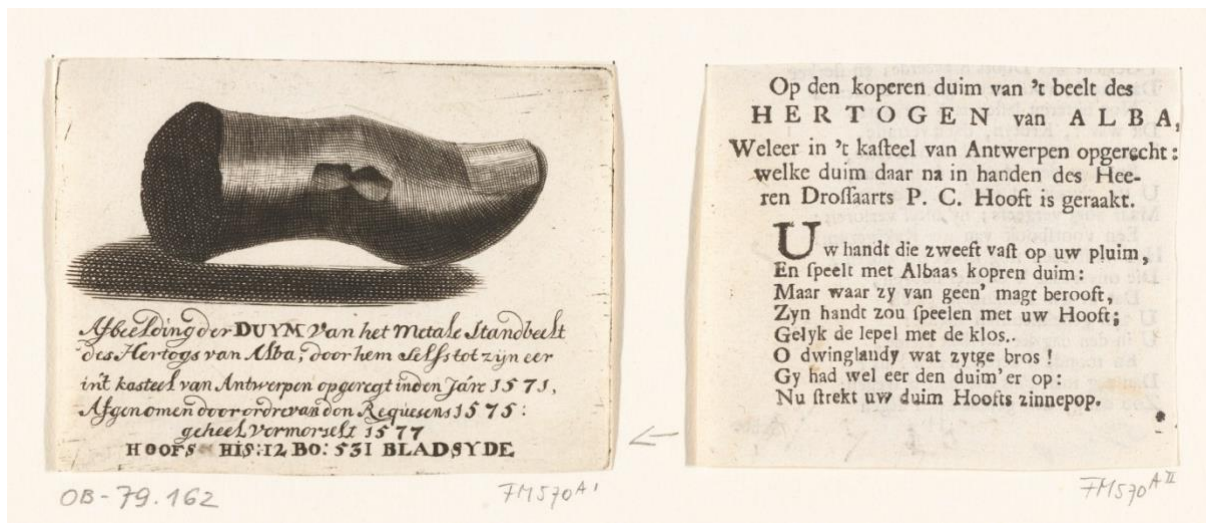 Afbeelding der DUYM Van het Metale Standbeelt
des Hertogs van Alba, door hem Selfs tot zijn eer
int kasteel van Antwerpen opgeregt inden Járe 1571,
Afgenomen door ordre van don Requesens 1575:
geheel vermorselt 1577
HOOFS HIS: 12 BO: 531 BLADSYDE
OB-79.162
FM570 A I
Op den koperen duim van 't beelt des
HERTOGEN van ALBA,
Weleer in 't kaſteel van Antwerpen opgerecht:
welke duim daar na in handen des Hee-
ren Droſſaarts P. C. Hooft is geraakt.
Uw handt die zweeft vaſt op uw pluim,
En ſpeelt met Albaas kopren duim:
Maar waar zy van geen' magt berooft,
Zyn handt zou ſpeelen met uw Hooft;
Gelyk de lepel met de klos..
O dwinglandy wat zytge bros!
Gy had wel eer den duim'er op:
Nu ſtrekt uw duim Hoofts zinnepop.
FM570 A II